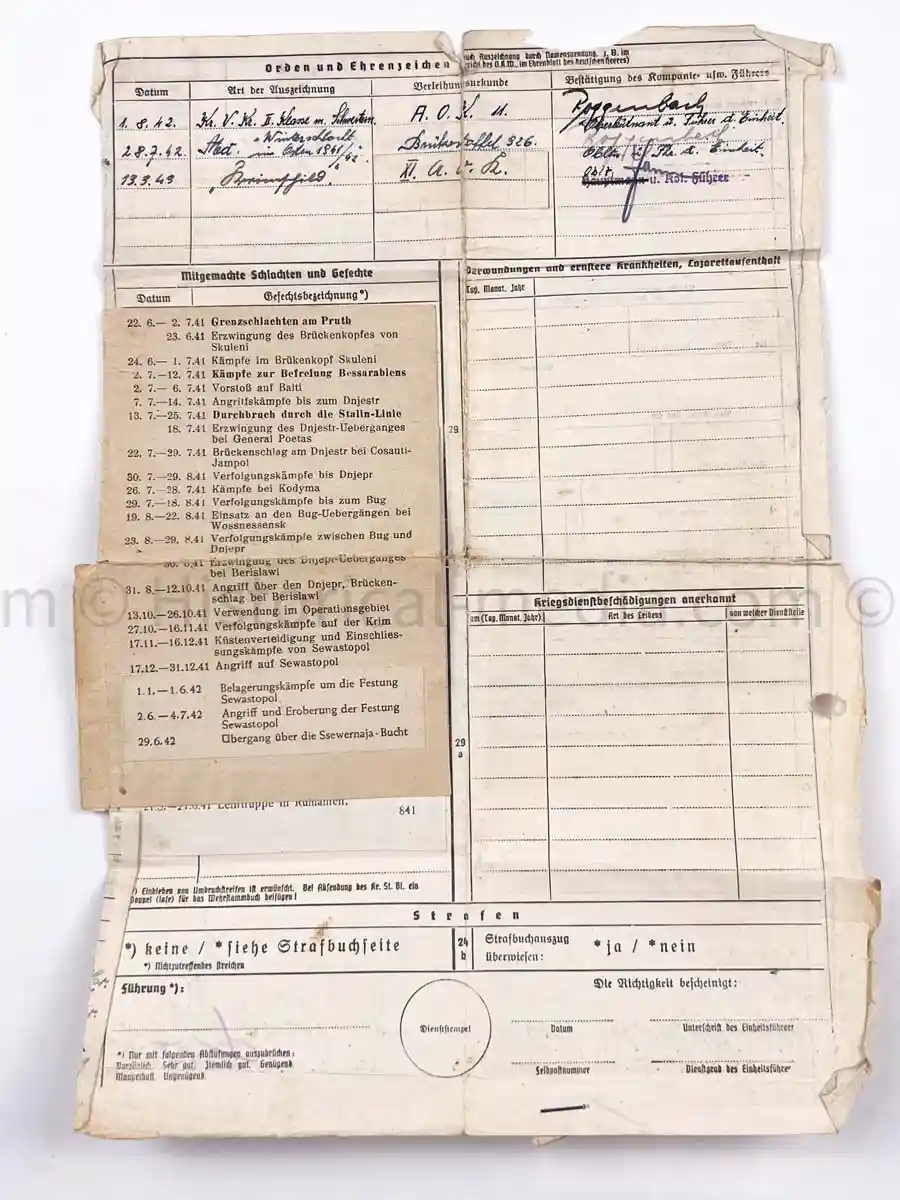 Orden und Ehrenzeichen
auch Auszeichnung durch Namensnennung, z. B. im
des O.K.W., im Ehrenblatt des deutschen Heeres)
Datum
Art der Auszeichnung
Verleihungsurkunde
Bestätigung des Kompanie- usw. Führers
1. 8. 42. Kr. V. Kr. II. Klasse m. Schwertern. A. O. K. 11. Poggenbach
Oberleutnant u. Führer d. Einheit.
28.7.42. Med. "Winterschlacht im Osten 1941/42." 926. Oblt. u. Fhr. d. Einheit.
13.3.43 "Krimschild" XI. A. K. Oblt.
Hauptmann u. Kol. Führer
Mitgemachte Schlachten und Gefechte
Datum
Gefechtsbezeichnung*)
22. 6.— 2. 7.41 Grenzschlachten am Pruth
23. 6.41 Erzwingung des Brückenkopfes von
Skuleni
24. 6.— 1. 7.41 Kämpfe im Brükenkopf Skuleni
2. 7.—12. 7.41 Kämpfe zur Befreiung Bessarabiens
2. 7.— 6. 7.41 Vorstoß auf Balti
7. 7.—14. 7.41 Angriffskämpfe bis zum Dnjestr
13. 7.—25. 7.41 Durchbruch durch die Stalin-Linie
18. 7.41 Erzwingung des Dnjestr-Ueberganges
bei General Poetas
22. 7.—29. 7.41 Brückenschlag am Dnjestr bei Cosauti-
Jampol
30. 7.—29. 8.41 Verfolgungskämpfe bis Dnjepr
26. 7.—28. 7.41 Kämpfe bei Kodyma
29. 7.—18. 8.41 Verfolgungskämpfe bis zum Bug
19. 8.—22. 8.41 Einsatz an den Bug-Uebergängen bei
Wossnessensk
23. 8.—29. 8.41 Verfolgungskämpfe zwischen Bug und
Dnjepr
30. 8.41 Erzwingung des Dnjepr-Ueberganges
bei Berislawl
31. 8.—12.10.41 Angriff über den Dnjepr, Brücken-
schlag bei Berislawl
13.10.—26.10.41 Verwendung im Operationsgebiet
27.10.—16.11.41 Verfolgungskämpfe auf der Krim
17.11.—16.12.41 Küstenverteidigung und Einschlies-
sungskämpfe von Sewastopol
17.12.—31.12.41 Angriff auf Sewastopol
1.1.—1.6.42 Belagerungskämpfe um die Festung
Sewastopol
2.6.—4.7.42 Angriff und Eroberung der Festung
Sewastopol
29.6.42 Übergang über die Ssewernaja-Bucht
Lehrtruppe in Rumänien.
841
*) Einkleben von Umdruckstreifen ist erwünscht. Bei Absendung des Kr. St. Bl. ein
Doppel (lose) für das Wehrstammbuch beifügen!
29
Verwundungen und ernstere Krankheiten, Lazarettaufenthalt
Tag, Monat, Jahr
29
a
Kriegsdienstbeschädigungen anerkannt
am (Tag, Monat, Jahr)
Art des Leidens
von welcher Dienststelle
Strafen
*) keine / * siehe Strafbuchseite
*) Nichtzutreffendes streichen
24
b
Strafbuchauszug
überwiesen:
* ja / * nein
Führung *):
*) Nur mit folgenden Abstufungen auszudrücken:
Vorzüglich. Sehr gut. Ziemlich gut. Genügend.
Mangelhaft. Ungenügend.
Dienststempel
Die Richtigkeit bescheinigt:
Datum
Unterschrift des Einheitsführer
Feldpostnummer
Dienstgrad des Einheitsführer